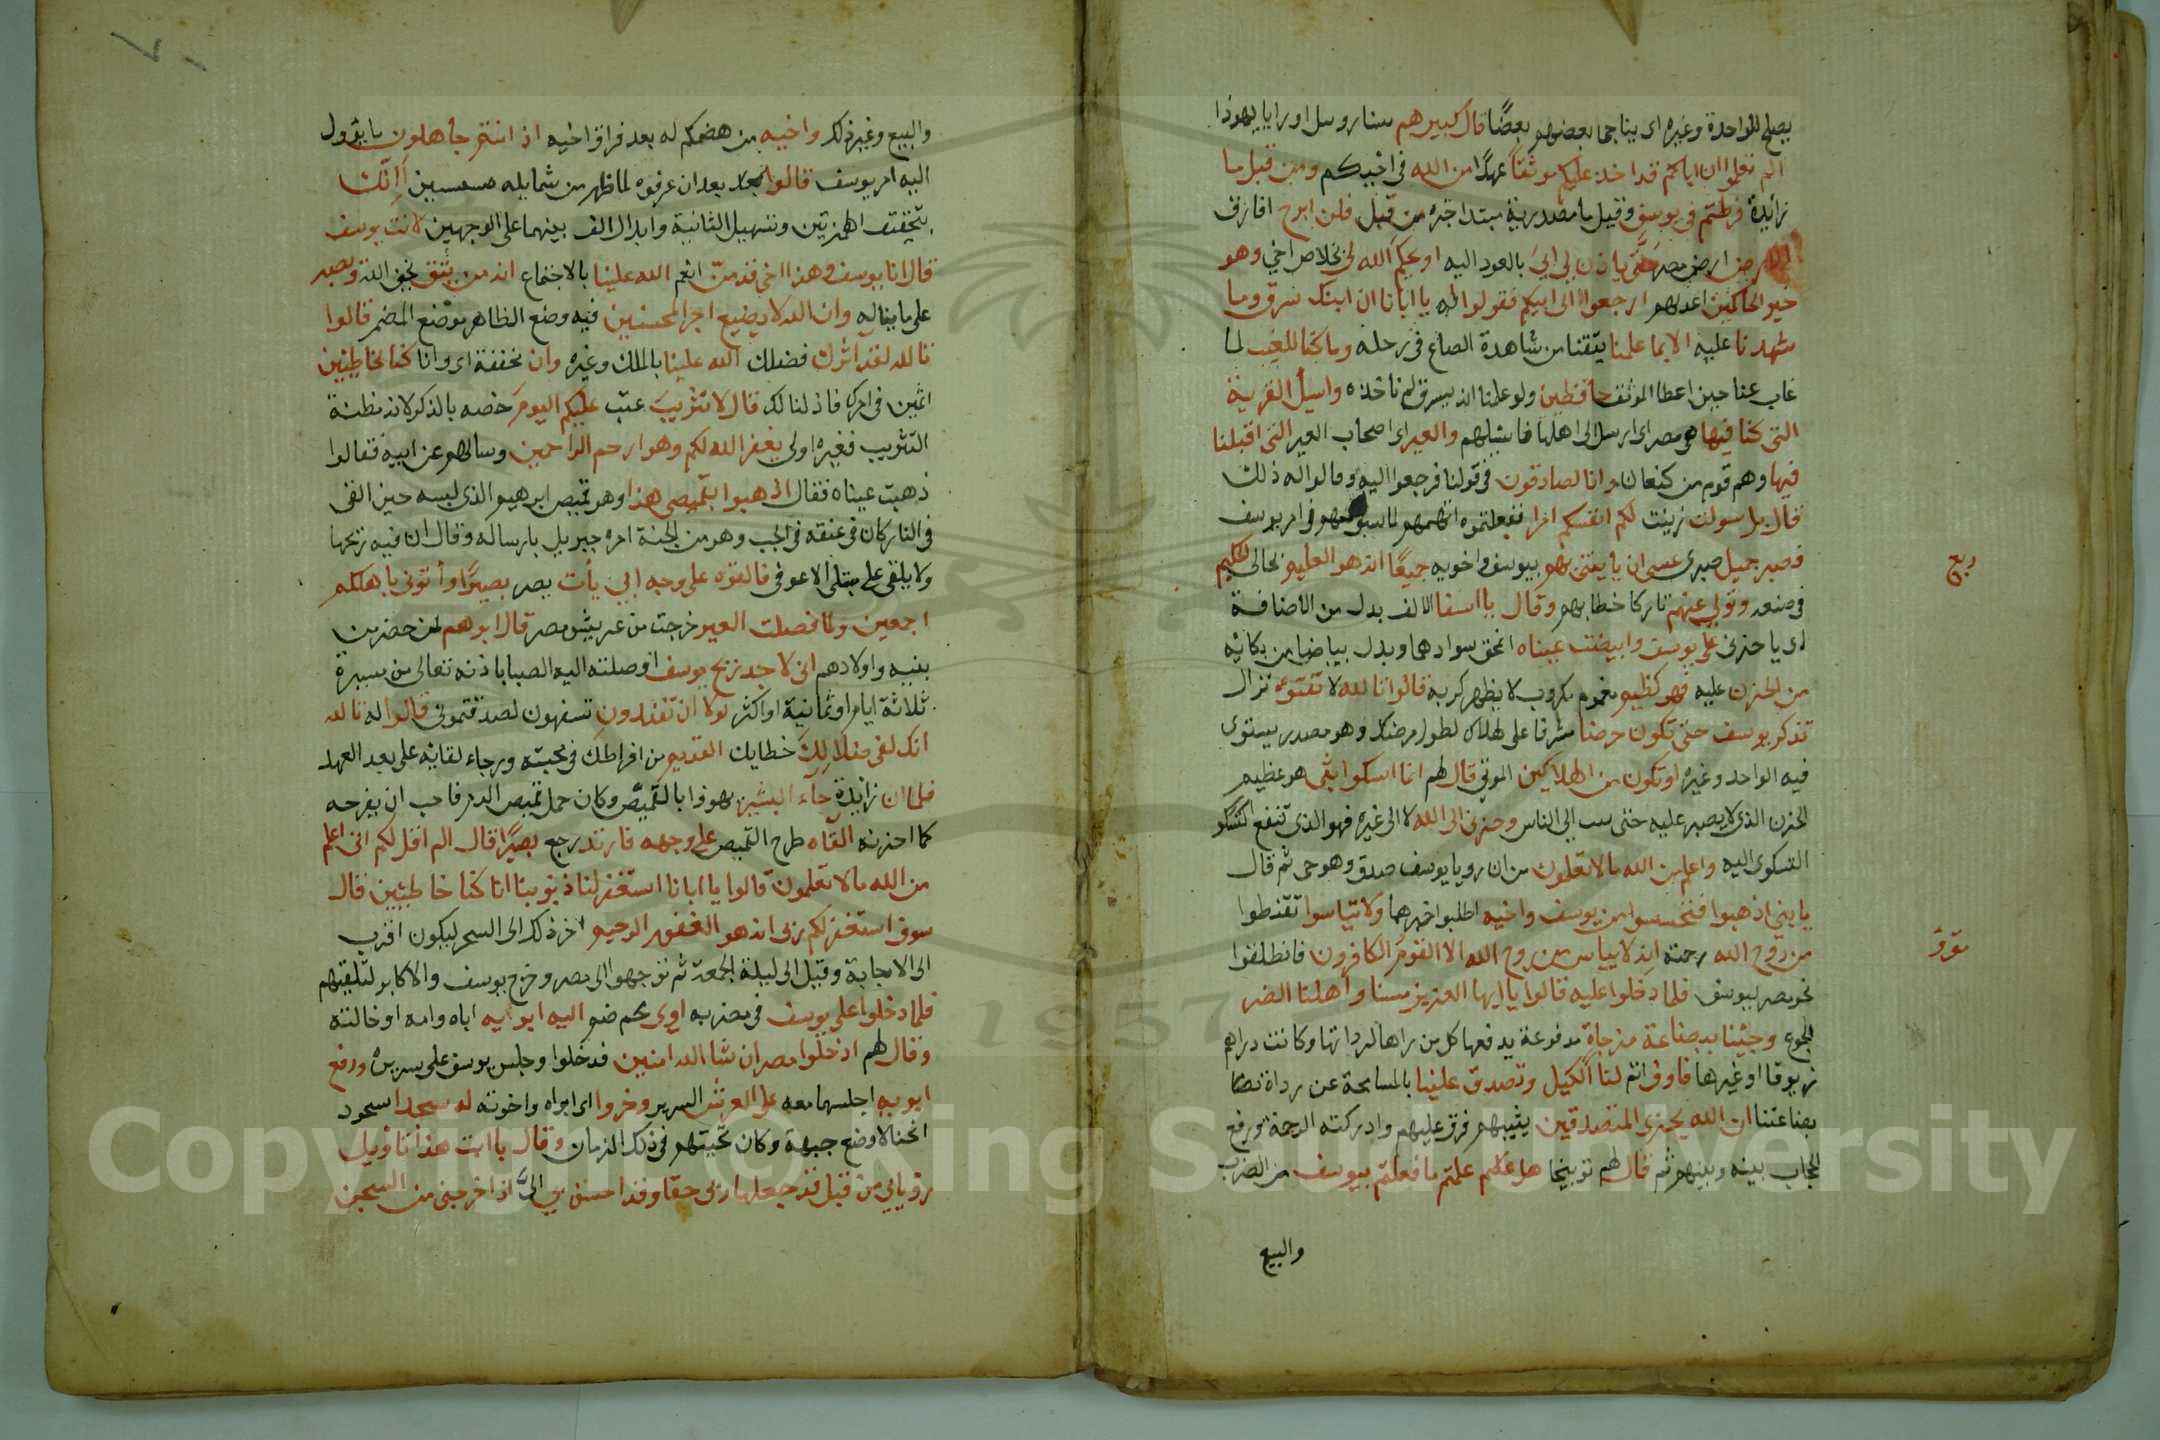 يصلح للواحدة وغيره اى يناجى بعضهم بعضًا قال كبيرهم سنا روبيل او رايا يهوذا
الم تعلموا ان اباكم قد اخذ عليكم موثقًا عهدًا من الله فى اخيكم ومن قبل ما
زايدة فرطتم فى يوسف وقيل ما مصدرية مبتدا خبره من قبل فلن ابرح افارق
الارض ارض مصر حتى ياذن لى ابى بالعود اليه او يحكم الله لى بخلاص اخى وهو
خير الحاكمين اعدلهم ارجعوا الى ابيكم فقولوا له يا ابانا ان ابنك سرق وما
شهدنا عليه الا بما علمنا يتقنا من شاهدة الصاع فى رحله وما كنا للغيب لما
غاب عنا حين اعطا الموثق حافظين ولو علمنا انه يسرق لم ناخذه واسيل القرية
التى كنا فيها هى مصر اى ارسل الى اهلها فاسئلهم والعير اى اصحاب العير التى اقبلنا
فيها وهم قوم من كنعان وانا لصادقون فى قولنا فرجعوا اليه وقالوا له ذلك
قال بل سولت زينت لكم انفسكم امرا ففعلتموه اتهمهم لما سبق منهم فى امر يوسف
فصبر جميل صبرى عسى ان ياتينى بهم بيوسف واخويه جميعًا انه هو العليم بحالى الحكيم
ربع
فى صنعه وتولى عنهم تاركا خطابهم وقال يا اسفا الالف بدل من الاضافة
اى يا حزنى على يوسف وابيضت عيناه انمحق سوادهما وبدل بياضا من بكائه
من الحزن عليه فهو كظيم مغموم مكروب لا يظهر كربه قالوا تالله لا تفتؤ تزال
تذكر يوسف حتى تكون حرضا مشرفا على هلاك لطول مرضك وهو مصدر يستوى
فيه الواحد وغيره او تكون من الهالكين الموتى قال لهم انما اشكوا بثى هو عظيم
الحزن الذى لا يصبر عليه حتى يبث الى الناس وحزنى الى الله لا الى غيره فهو الذى تنفع الشكو
الشكوى اليه واعلم من الله ما لا تعلمون من ان رويا يوسف صدق وهو حى ثم قال
يا بنى اذهبوا فتحسسوا من يوسف واخيه اطلبوا خبرهما ولا تياسوا تقنطوا
من روح الله رحمته انه لا يياس من روح الله الا القوم الكافرون فانطلقوا
نحو مصر ليوسف فلما دخلوا عليه قالوا يا ايها العزيز مسنا واهلنا الضر
الجوع وجئنا ببضاعة مزجاة مدفوعة يدفعها كل من راها لرداتها وكانت دراهم
زيوفا او غيرها فاوف اتم لنا الكيل وتصدق علينا بالمسامحة عن رداة
بضاعتنا ان الله يجزى المتصدقين يثيبهم فرق عليهم وادركته الرحمة ورفع
الحجاب بينه وبينهم ثم قال لهم توبيخا هل علمتم ما فعلتم بيوسف من الضرب
والبيع
والبيع وغير ذلك واخيه من هضمكم له بعد فراق اخيه اذ انتم جاهلون ما يؤول
اليه امر يوسف قالوا بعد ان عرفوه لما ظهر من شمايله أانك
بتحقيق الهمزتين وتسهيل الثانية وابدال الف بينهما على الوجهين لانت يوسف
قال انا يوسف وهذا اخى قد منّ انعم الله علينا بالاجتماع انه من يتق يخف الله ويصبر
على ما يناله وان الله لا يضيع اجر المحسنين فيه وضع الظاهر موضع المضمر قالوا
تالله لقد اثرك فضلك الله علينا بالملك وغيره وان مخففة اى وانا كنا لخاطئين
اثمين فى امرك فاذلنا لك قال لا تثريب عتب عليكم اليوم خصه بالذكر لانه مظنة
التثريب فغيره اولى يغفر الله لكم وهو ارحم الراحمين وسالهم عن ابيه فقالوا
ذهبت عيناه فقال اذهبوا بقميصى هذا وهو قميص ابرهيم الذى لبسه حين القى
فى النار كان فى عنقه فى الجب وهو من الجنة امره جبريل بارساله وقال ان فيه ريحها
ولا يلقى على مبتلى الا عوفى فالقوه على وجه ابى يأت يصر بصيرًا وأتونى باهلكم
اجمعين ولما فصلت العير خرجت من عريش مصر قال ابوهم لمن حضر من
بنيه واولادهم انى لاجد ريح يوسف اوصلته اليه الصبا باذنه تعالى من مسيرة
ثلاثة ايام او ثمانية او اكثر لولا ان تفندون تسفهون لصدقتمونى قالوا له تالله
انك لفى ضلالك خطايك القديم من افراطك فى محبته ورجاء لقايه على بعد العهد
فلما ان زايدة جآء البشير يهوذا بالقميص وكان حمل قميص الدم فاحب ان يفرحه
كما احزنه القاه طرح القميص على وجهه فارتد رجع بصيرًا قال الم اقل لكم انى اعلم
من الله ما لا تعلمون قالوا يا ابانا استغفر لنا ذنوبنا انا كنا خاطئين قال
سوف استغفر لكم ربى انه هو الغفور الرحيم اخر ذلك الى السحر ليكون اقرب
الى الاجابة وقيل الى ليلة الجمعة ثم توجهوا الى مصر وخرج يوسف والاكابر لتلقيهم
فلما دخلوا على يوسف فى مضربه اوى ضم اليه ابويه اباه وامه او خالته
وقال لهم ادخلوا مصر ان شا الله امنين فدخلوا وجلس يوسف على سريره ورفع
ابويه اجلسهما معه على العرش السرير وخروا اى ابواه واخوته له سجدا سجود
انحنا لا وضع جبهة وكان تحيتهم فى ذلك الزمان وقال يا ابت هذا تاويل
رؤياي من قبل قد جعلها ربى حقا وقد احسن بي الىّ اذ اخرجنى من السجن
Copyright © King Saud University
1957